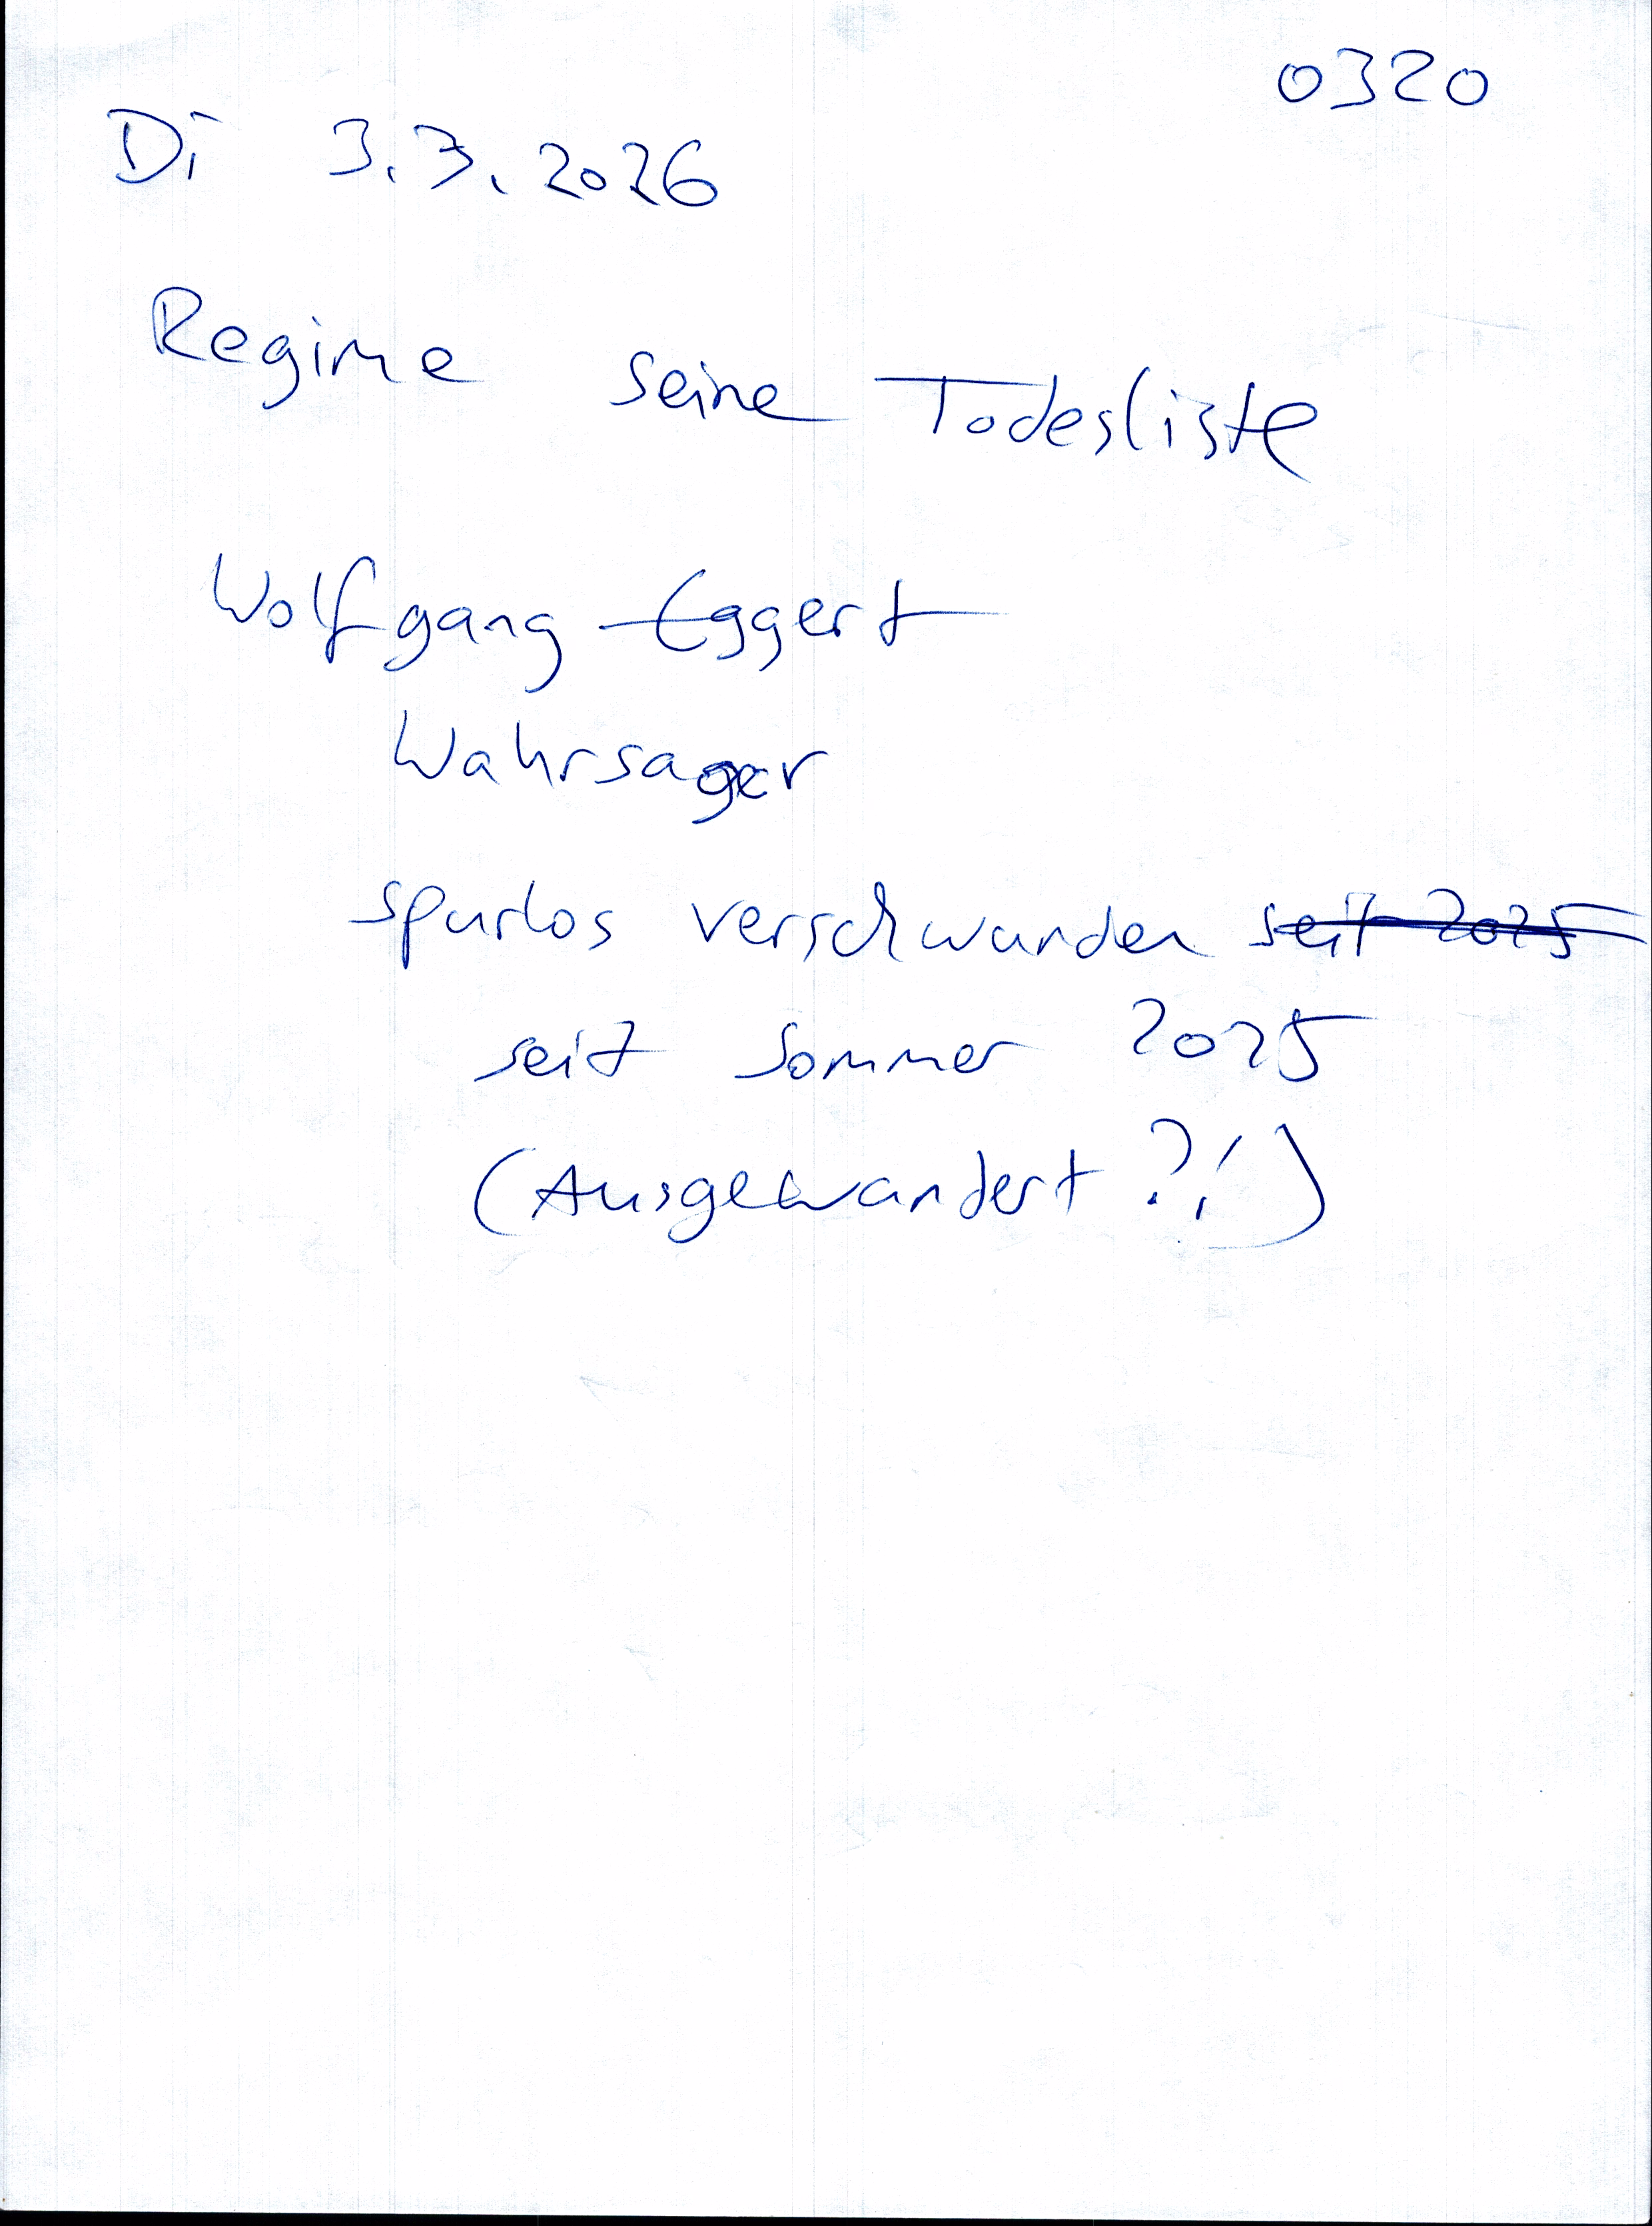 0320
Di 3.3.2026
Regime seine Todesliste
Wolfgang Eggert
Wahrsager
spurlos verschwunden seit 2025
seit Sommer 2025
(Ausgewandert ?!)